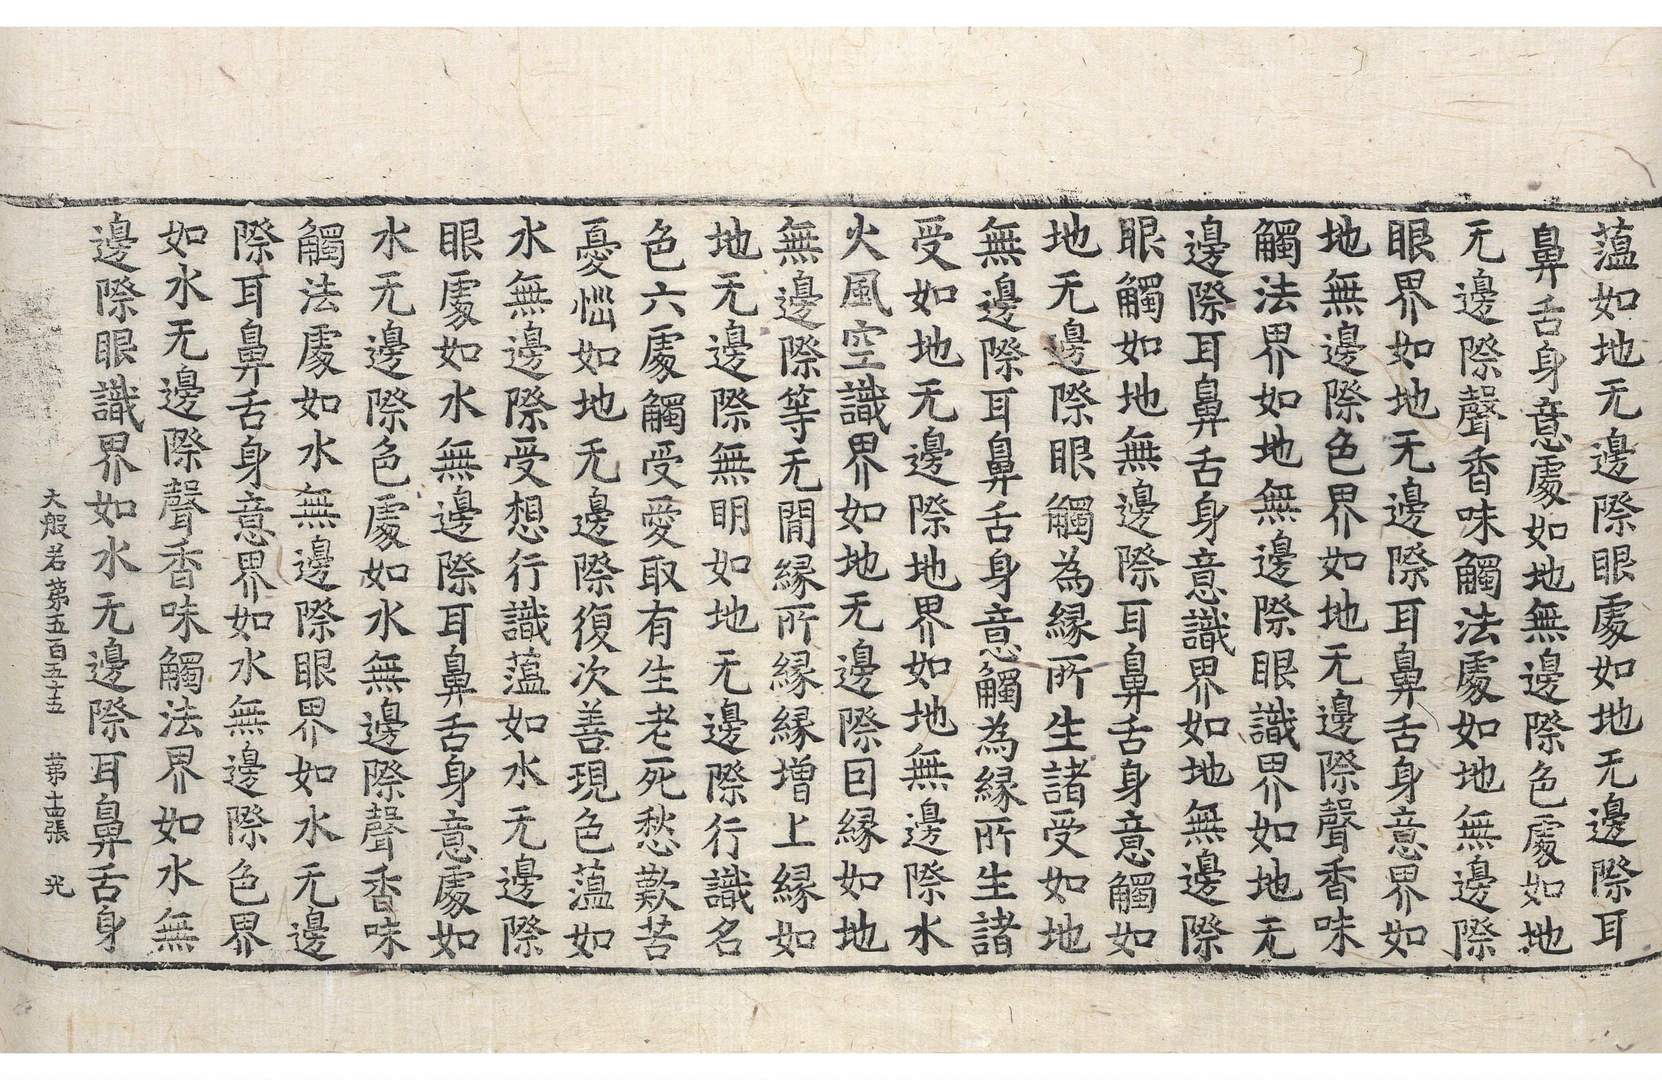 蕰如地无邊際眼處如地无邊際耳
鼻舌身意處如地無邊際色處如地
无邊際聲香味觸法處如地無邊際
眼界如地无邊際耳鼻舌身意界如
地無邊際色界如地无邊際聲香味
觸法界如地無邊際眼識界如地无
邊際耳鼻舌身意識界如地無邊際
眼觸如地無邊際耳鼻舌身意觸如
地无邊際眼觸為縁所生諸受如地
無邊際耳鼻舌身意觸為縁所生諸
受如地无邊際地界如地無邊際水
火風空識界如地无邊際因縁如地
無邊際等无閒縁所縁縁增上縁如
地无邊際無明如地无邊際行識名
色六處觸受愛取有生老死愁歎苦
憂惱如地无邊際復次善現色蕰如
水無邊際受想行識蕰如水无邊際
眼處如水無邊際耳鼻舌身意處如
水无邊際色處如水無邊際聲香味
觸法處如水無邊際眼界如水无邊
際耳鼻舌身意界如水無邊際色界
如水无邊際聲香味觸法界如水無
邊際眼識界如水无邊際耳鼻舌身
大般若第五百五十五 第十四張 光